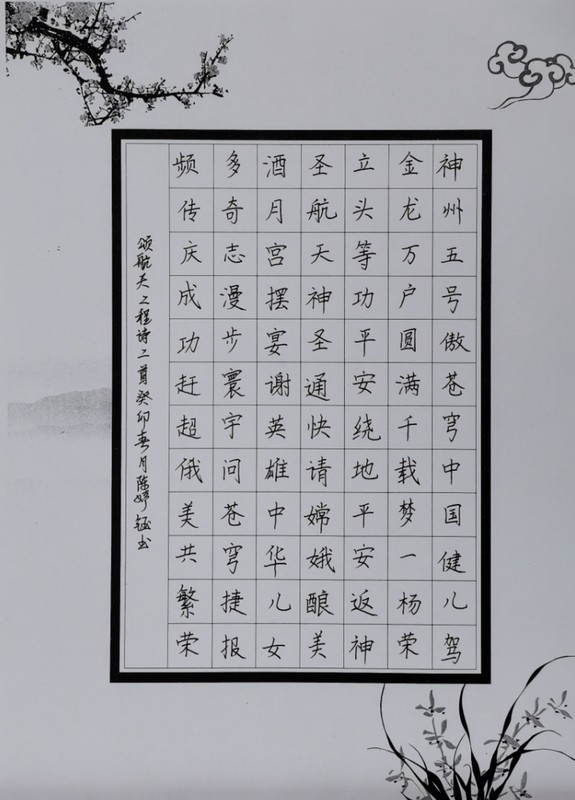 神州五号傲苍穹中国健儿驾
金龙万户圆满千载梦一杨荣
立头等功平安绕地平安返神
圣航天神圣通快请嫦娥酿美
酒月宫摆宴谢英雄中华儿女
多奇志漫步寰宇问苍穹捷报
频传庆成功赶超俄美共繁荣
颂航天之程诗二首癸卯春月陈婷钰书